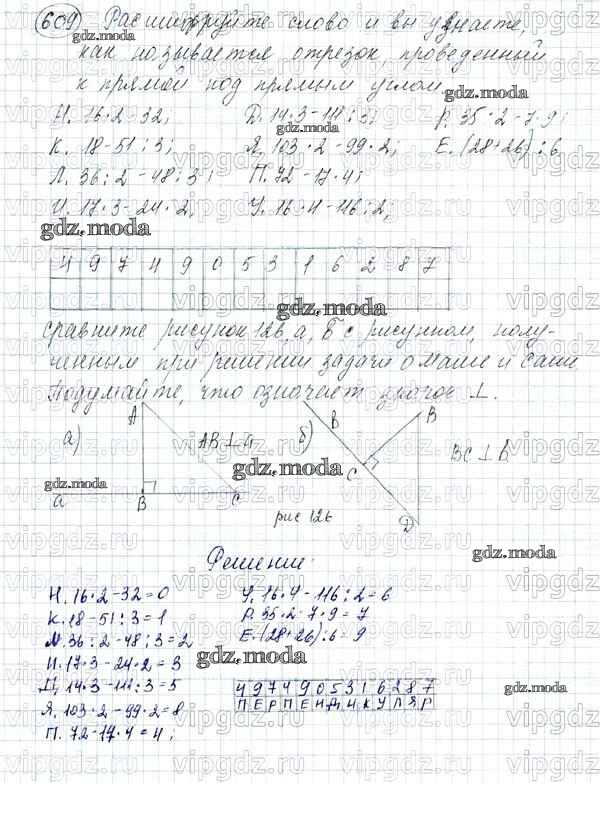 609 Расшифруйте слово и вы узнаете,
как называется отрезок, проведенный
к прямой под прямым углом.
gdz.moda
Н. 16·2-32; Д. 14·3-111:3; Р. 35·2-7·9;
gdz.moda
К. 18-51:3; Я. 103·2-99·2; Е. (28+26):6
Л. 36:2-48:3; П. 72-17·4;
И. 17·3-24·2; У. 16·4-116:2;
gdz.moda
4 9 7 4 9 0 5 3 1 6 2 8 7
gdz.moda
сравните рисунок 126, а, б с рисунком, полу-
ченным при решении задачи о Маше и Саше.
Подумайте, что означает значок ⊥.
а) A AB⊥a б) B B BC⊥b
gdz.moda
gdz.moda
a B C C D
рис 126
gdz.moda
Решение:
gdz.moda
Н. 16·2-32=0 У. 16·4-116:2=6
К. 18-51:3=1 Р. 35·2-7·9=7
Л. 36:2-48:3=2 Е. (28+26):6=9
И. 17·3-24·2=3
gdz.moda
Д. 14·3-111:3=5 4 9 7 4 9 0 5 3 1 6 2 8 7
gdz.moda
Я. 103·2-99·2=8 П Е Р П Е Н Д И К У Л Я Р
П. 72-17·4=4;
gdz.moda